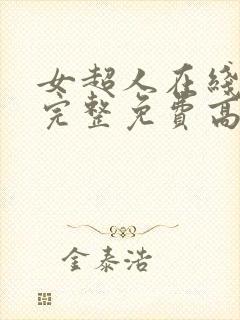 女超人在綫
完整免費高
金泰浩